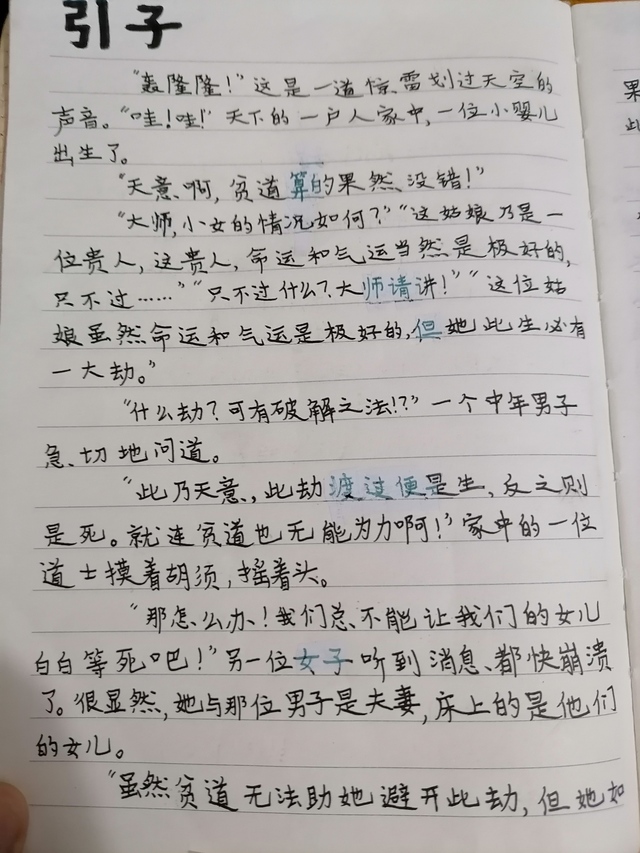 引子
“轰隆隆！”这是一道惊雷划过天空的
声音。“哇！哇！”天下的一户人家中，一位小婴儿
出生了。
“天意啊，贫道算的果然没错！”
“大师，小女的情况如何？”“这姑娘乃是一
位贵人，这贵人，命运和气运当然是极好的，
只不过……”“只不过什么？大师请讲！”“这位姑
娘虽然命运和气运是极好的，但她此生必有
一大劫。”
“什么劫？可有破解之法！？”一个中年男子
急切地问道。
“此乃天意，此劫渡过便是生，反之则
是死。就连贫道也无能为力啊！”家中的一位
道士摸着胡须，摇着头。
“那怎么办！我们总不能让我们的女儿
白白等死吧！”另一位女子听到消息都快崩溃
了。很显然，她与那位男子是夫妻，床上的是他们
的女儿。
“虽然贫道无法助她避开此劫，但她如
果
此